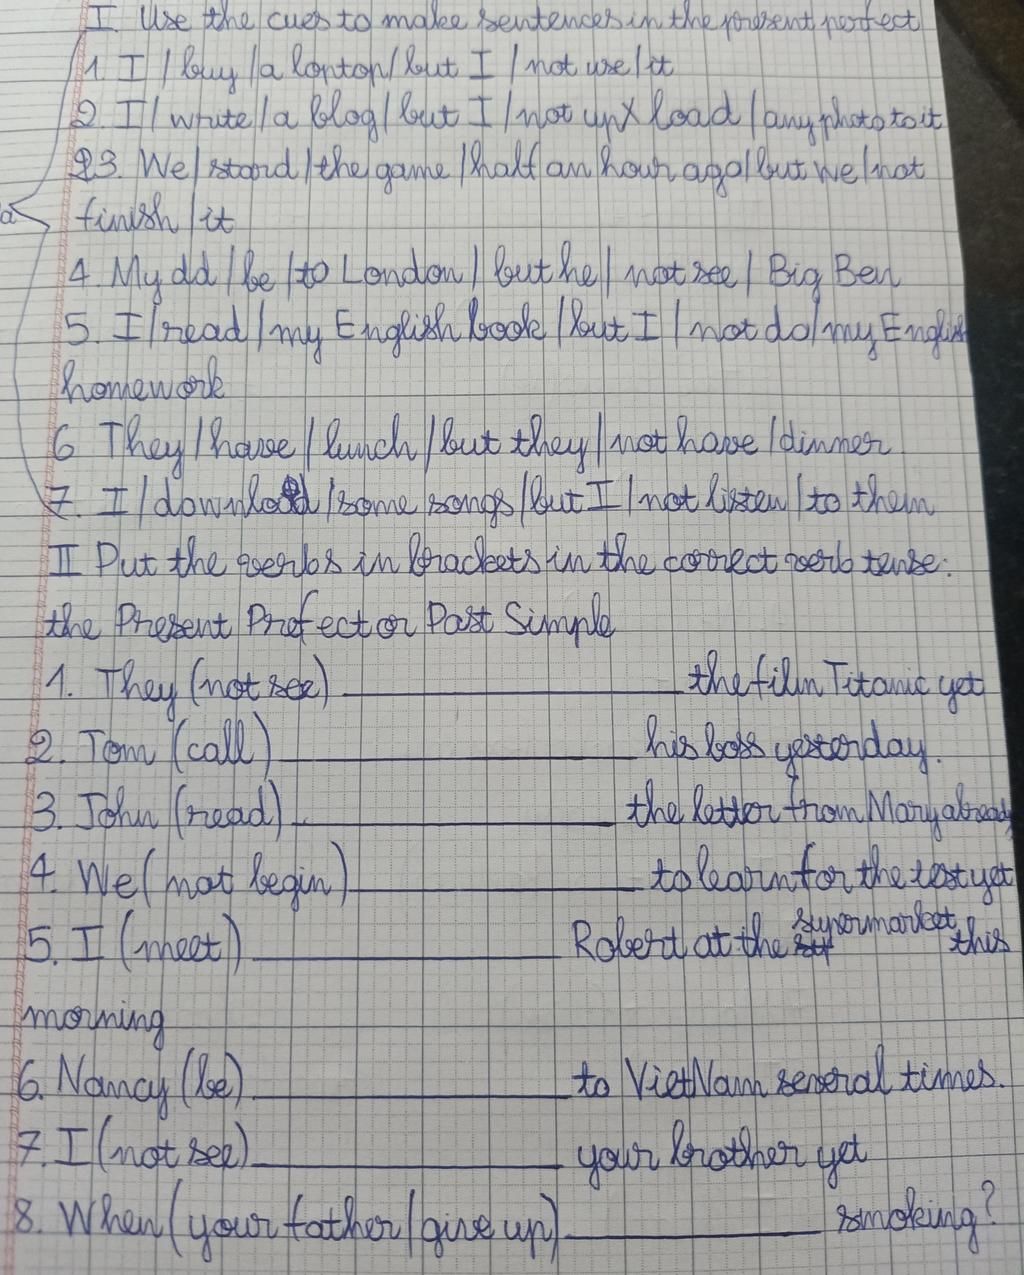 I. Use the cues to make sentences in the present perfect
1. I / buy / a lontop / but I / not use / it
2. I / write / a blog / but I / not upx load / any photo to it
23. We / stard / the game / half an hour ago / but we / not
finish / it
4. My dd / be / to London / but he / not see / Big Ben
5. I / read / my English book / but I / not do / my English
homework
6 They / have / lunch / but they / not have / dinner
7. I / download / some songs / but I / not listen / to them
II Put the verbs in brackets in the correct verb tense:
the Present Prefect or Past Simple
1. They (not see) ________ the film Titanic yet
2. Tom (call) ________ his boss yesterday.
3. John (read) ________ the letter from Mary already
4. We (not begin) ________ to learn for the test yet
5. I (meet) ________ Roberd at the supermarket this
morning
6. Nancy (be) ________ to VietNam several times.
7. I (not see) ________ your brother yet
8. When (your father / give up) ________ smoking?